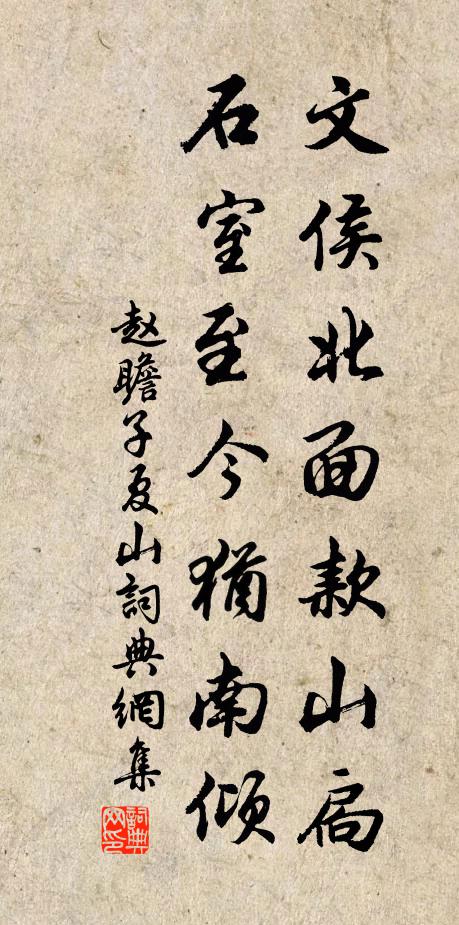 文侯北面款山扃
石室至今犹南倾
赵瞻子夏山詞典網集
詞典
网印